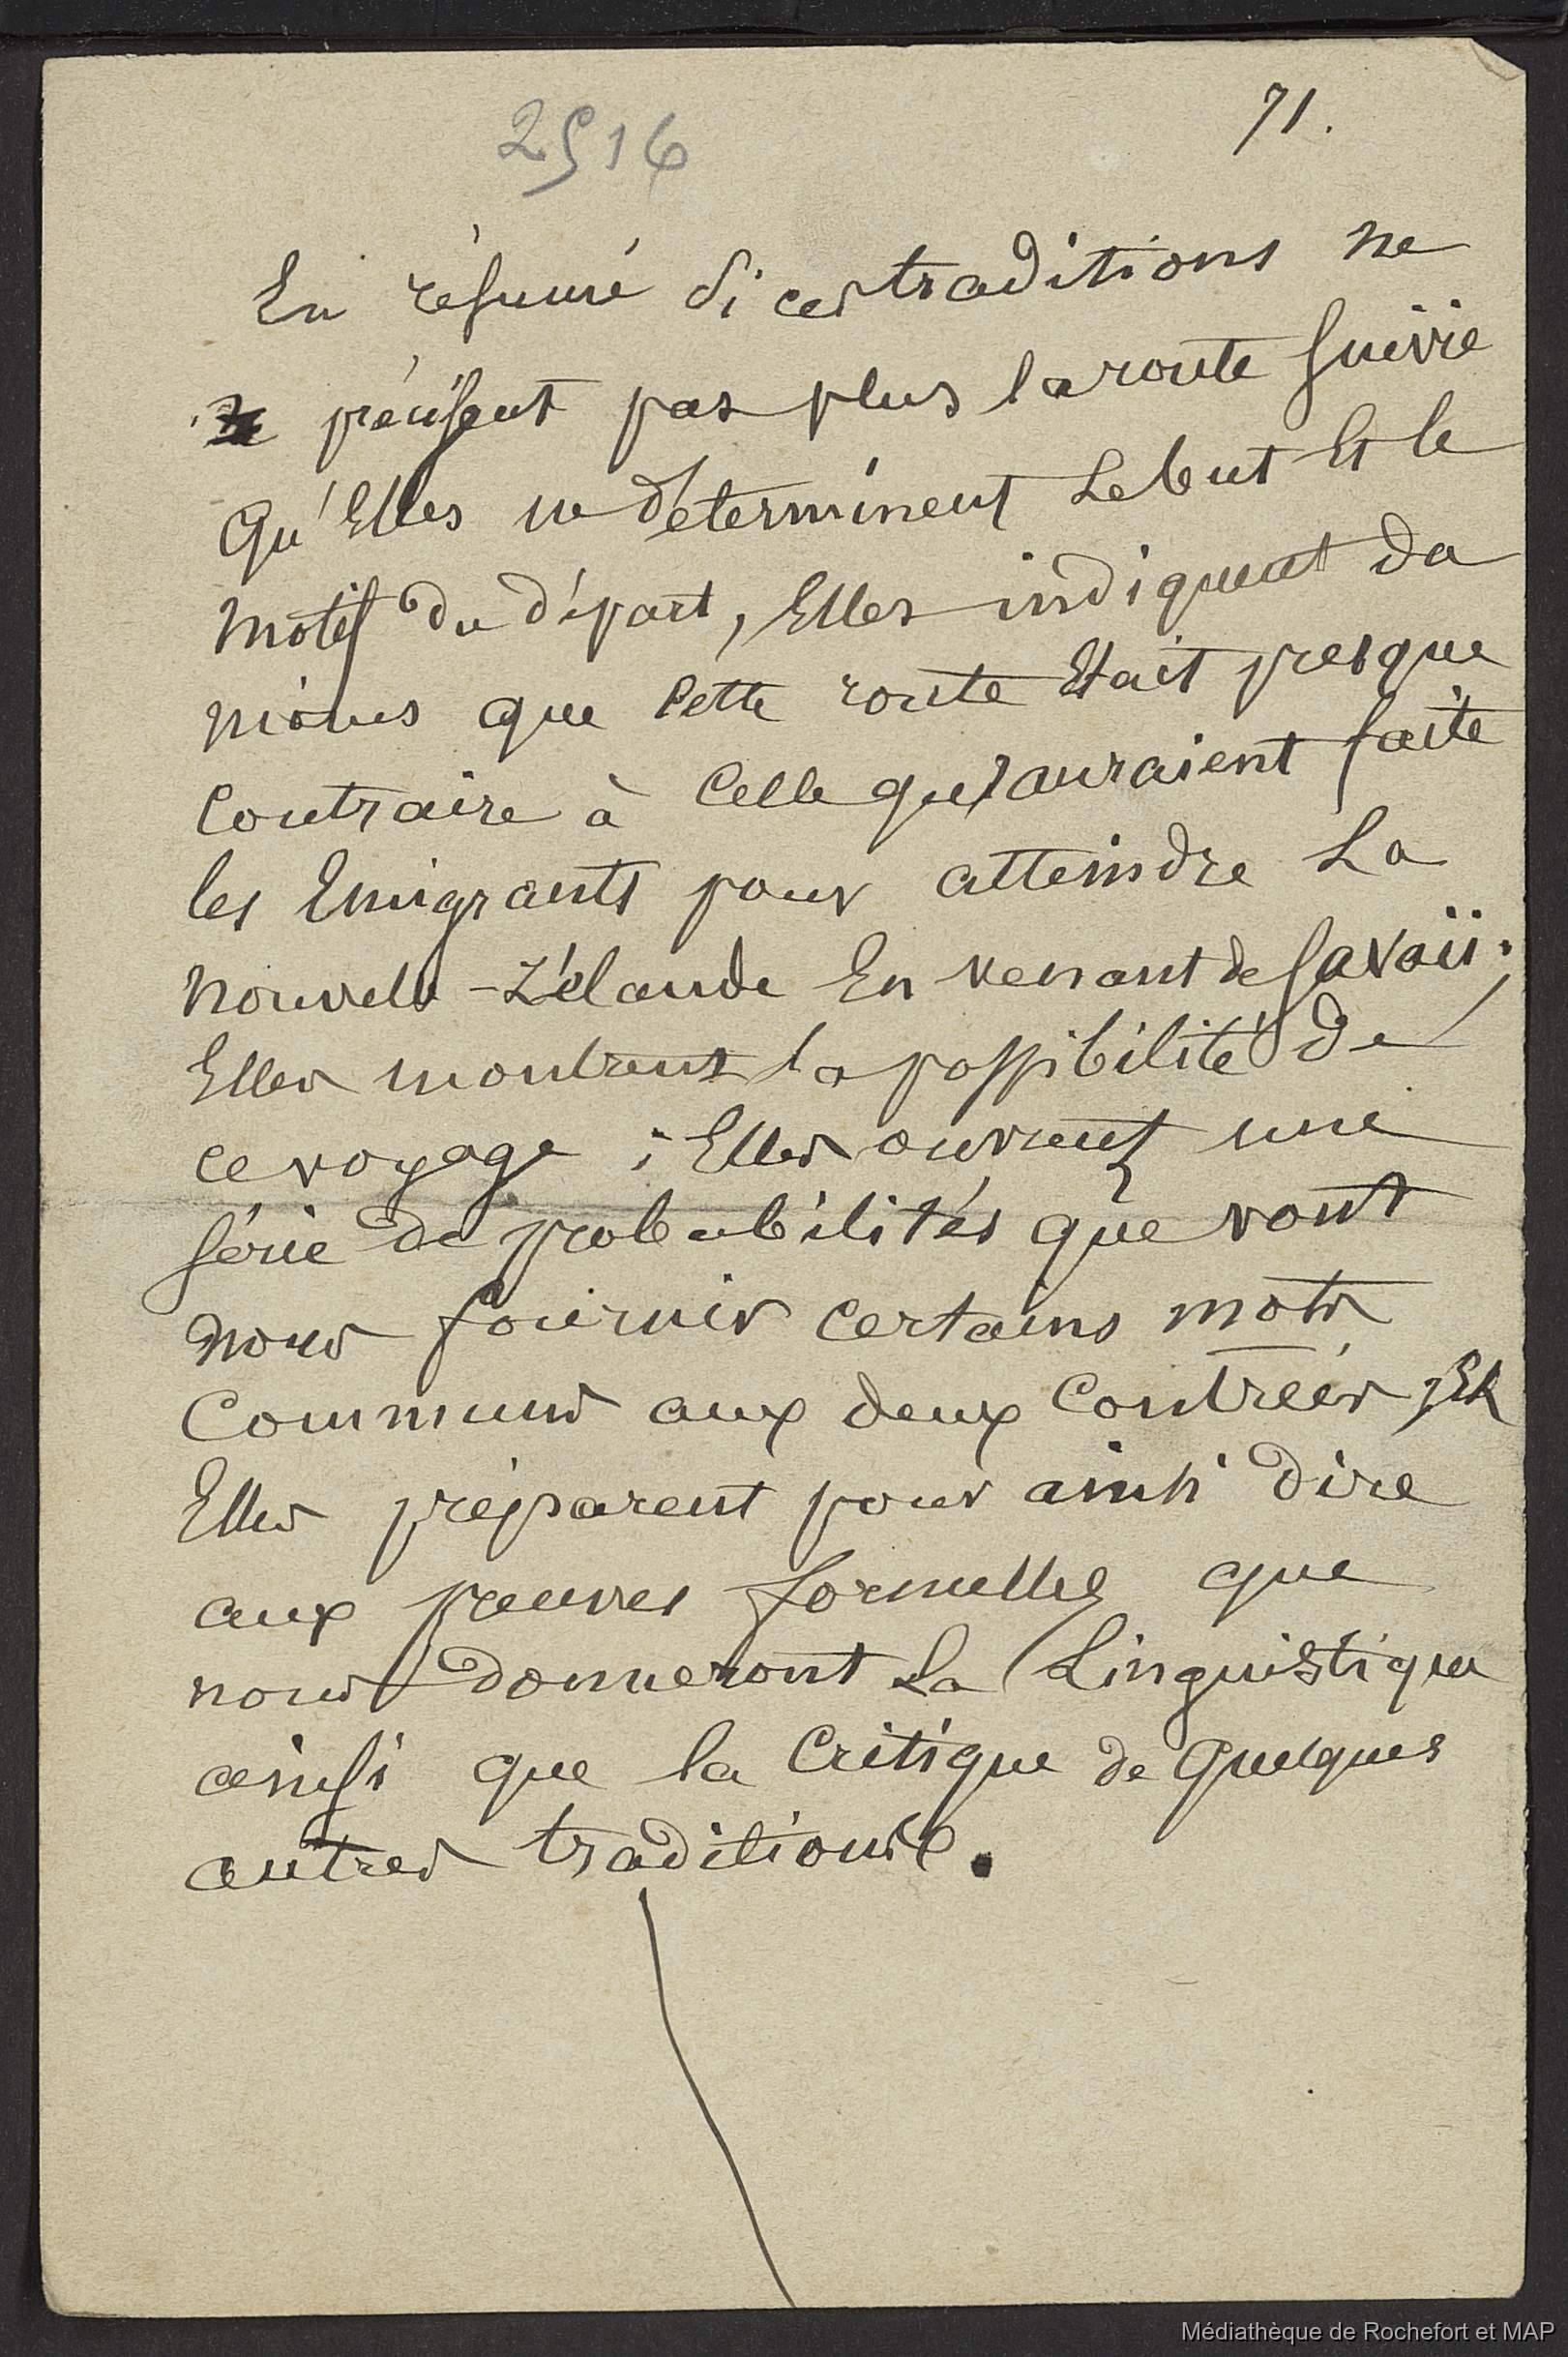 2516
71.
En résumé si ces traditions ne
précisent pas plus la route suivie
qu'Elles ne déterminent Le but Et le
motif du départ, Elles indiquent du
moins que Cette route Etait presque
Contraire à Celle qu'auraient faite
les Emigrants pour atteindre La
Nouvelle-Zélande En venant de Savaïi;
Elles montrent la possibilité de
ce voyage ; Elles ouvrent une
série de probabilités que vont
nous fournir certains mots
Communs aux deux Contrées, Et
Elles préparent pour ainsi dire
aux preuves formelles que
nous donneront La Linguistique
ainsi que la Critique de quelques
autres traditions.
Médiathèque de Rochefort et MAP